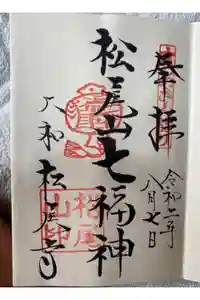 奉拝
令和二年
八月七日
松尾山七福神
大和
松尾寺
松尾山印